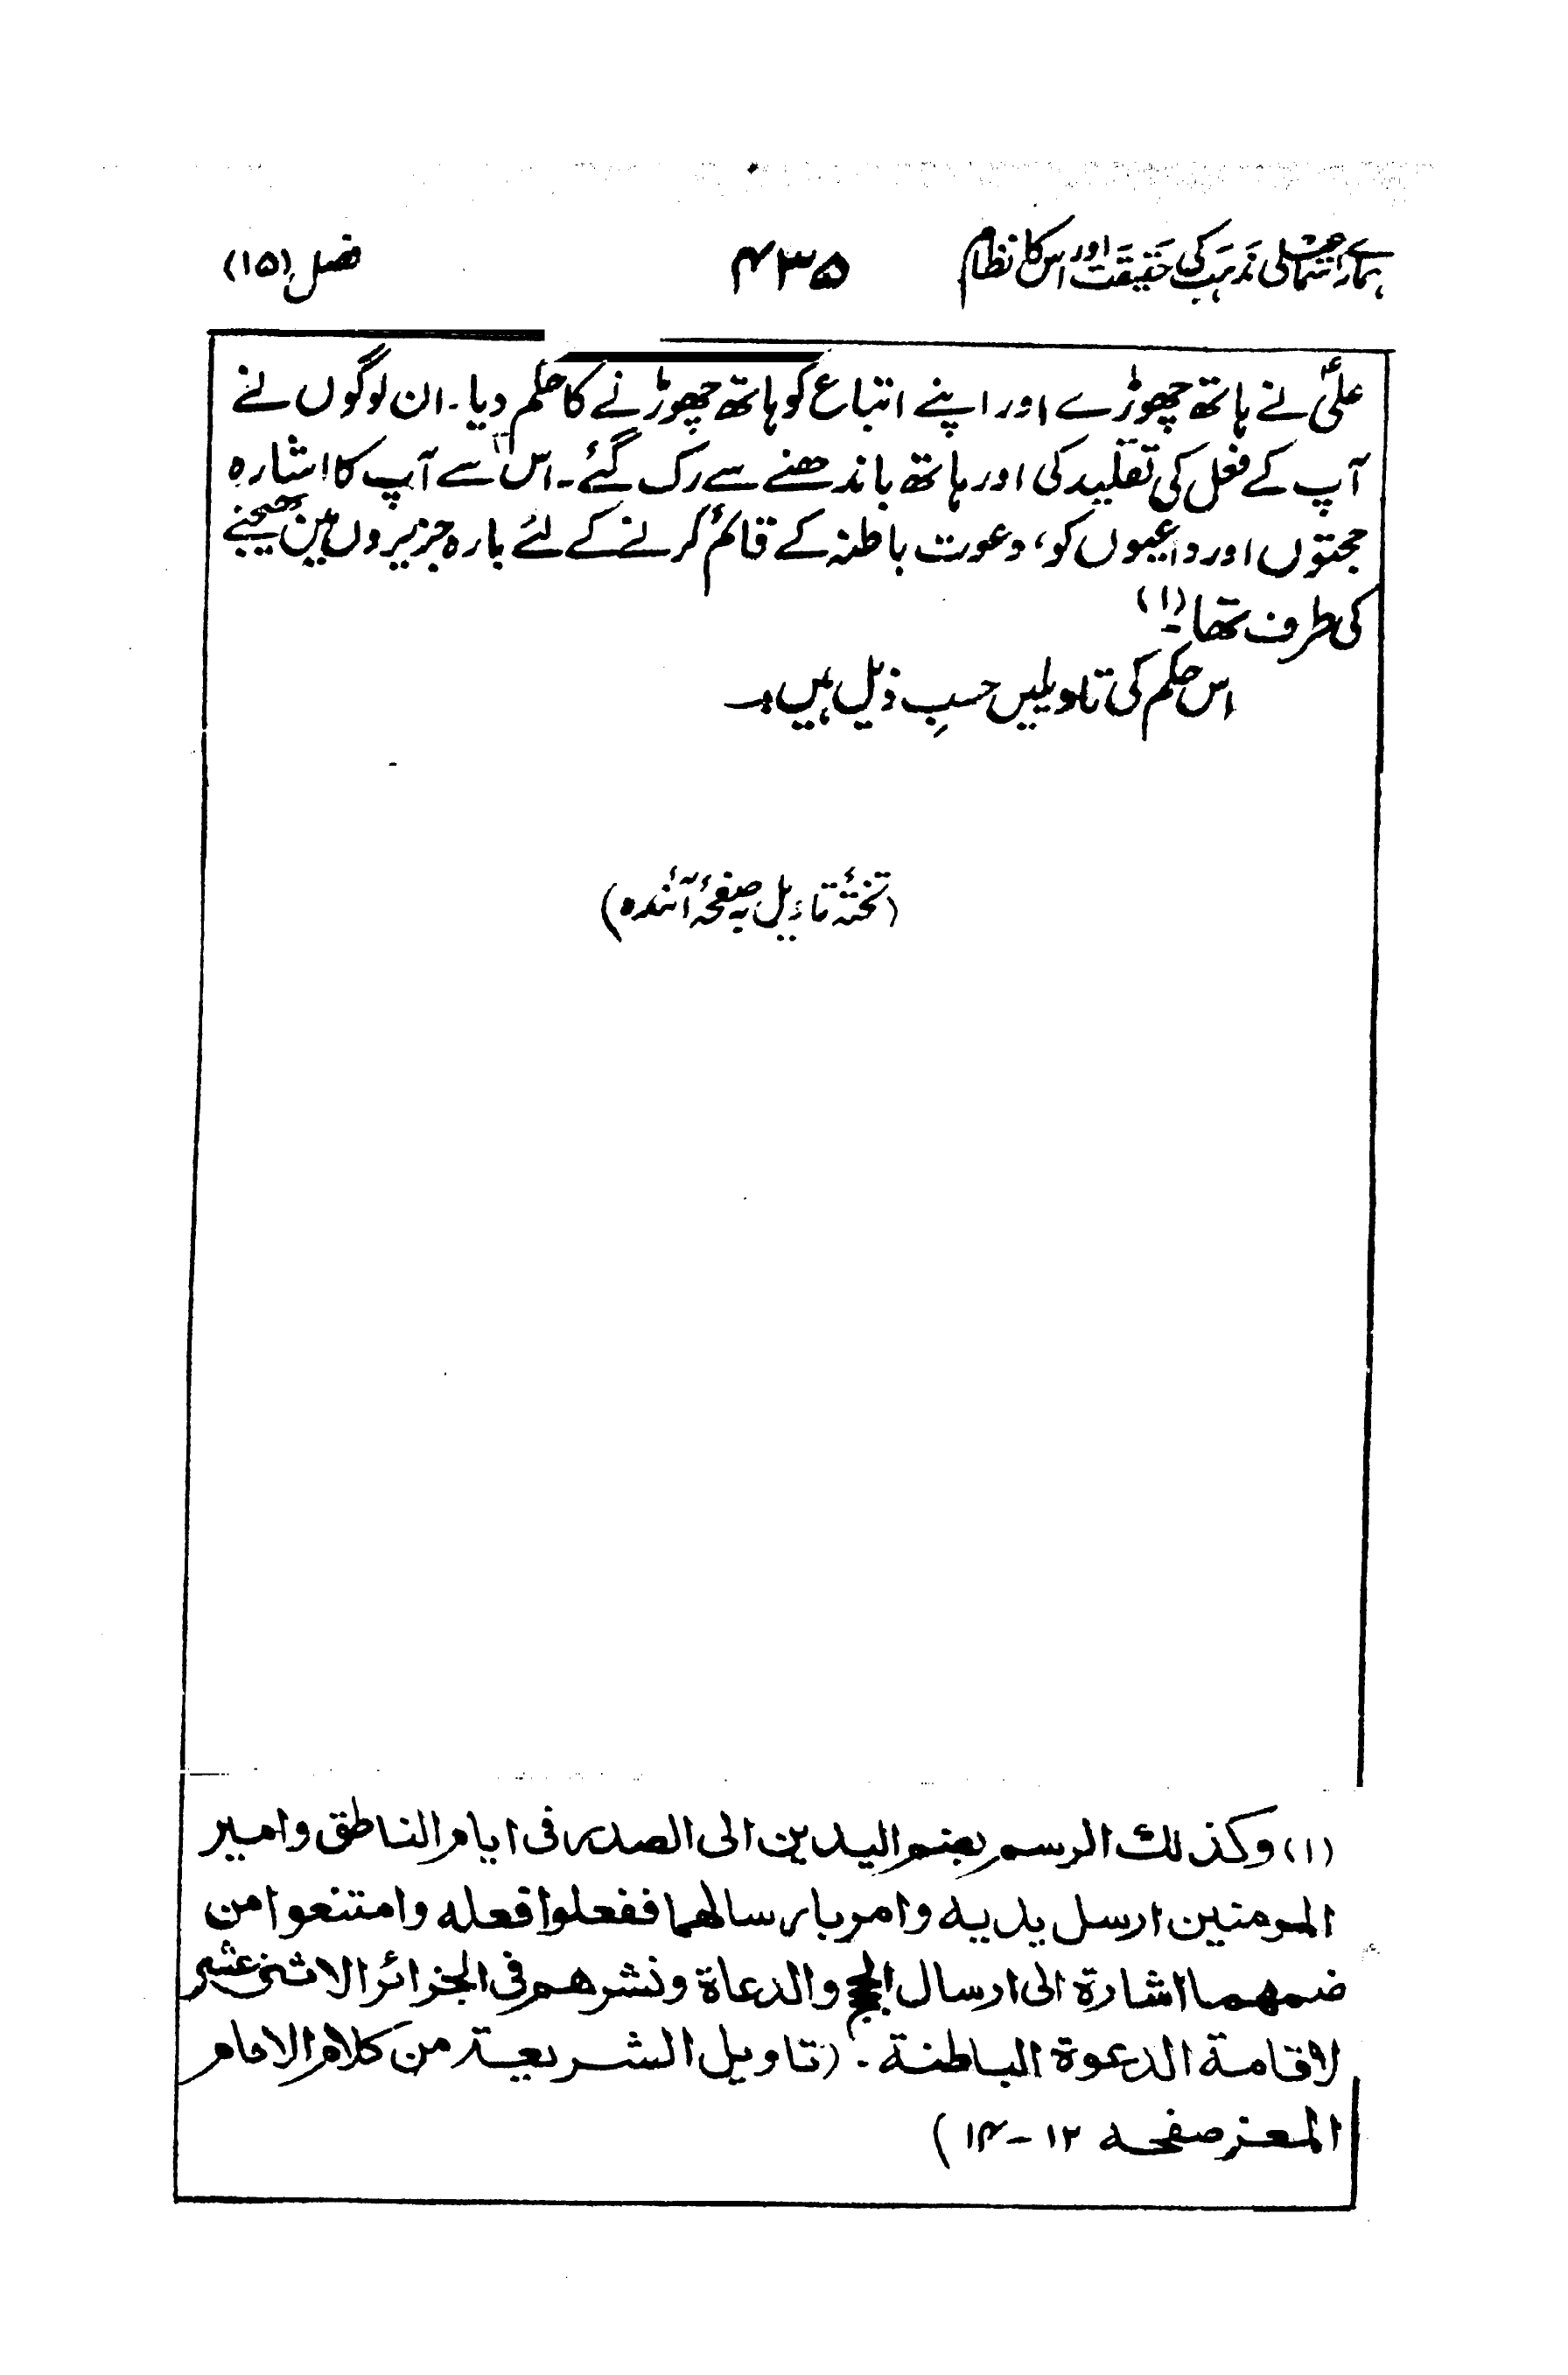 ہمارے اسمٰعیلی مذہب کی حقیقت اور اس کا نظام ۴۳۵ فصل (۱۵)
علیؑ نے ہاتھ چھوڑے اور اپنے اتباع کو ہاتھ چھوڑنے کا حکم دیا۔ ان لوگوں نے
آپ کے فعل کی تقلید کی اور ہاتھ باندھنے سے رک گئے۔ اس سے آپ کا اشارہ
حجتوں اور داعیوں کو، دعوت باطنہ کے قائم کرنے کے لئے بارہ جزیروں میں بھیجنے
کی طرف تھا۔ (۱)
اس حکم کی تاویلیں حسبِ ذیل ہیں:۔
(تختۂ تاویل بہ صفحۂ آئندہ)
(۱) وكذلك الرسم بضم اليدين الى الصدر فى ايام الناطق وامير
المومنين ارسل يديه وامر بارسالهما ففعلوا فعله وامتنعوا من
ضمهما اشارة الى ارسال الحجج والدعاة ونشرهم فى الجزائر الاثنى عشر
لاقامة الدعوة الباطنة۔ (تاويل الشريعة من كلام الامام
المعز صفحه ۱۲-۱۴)